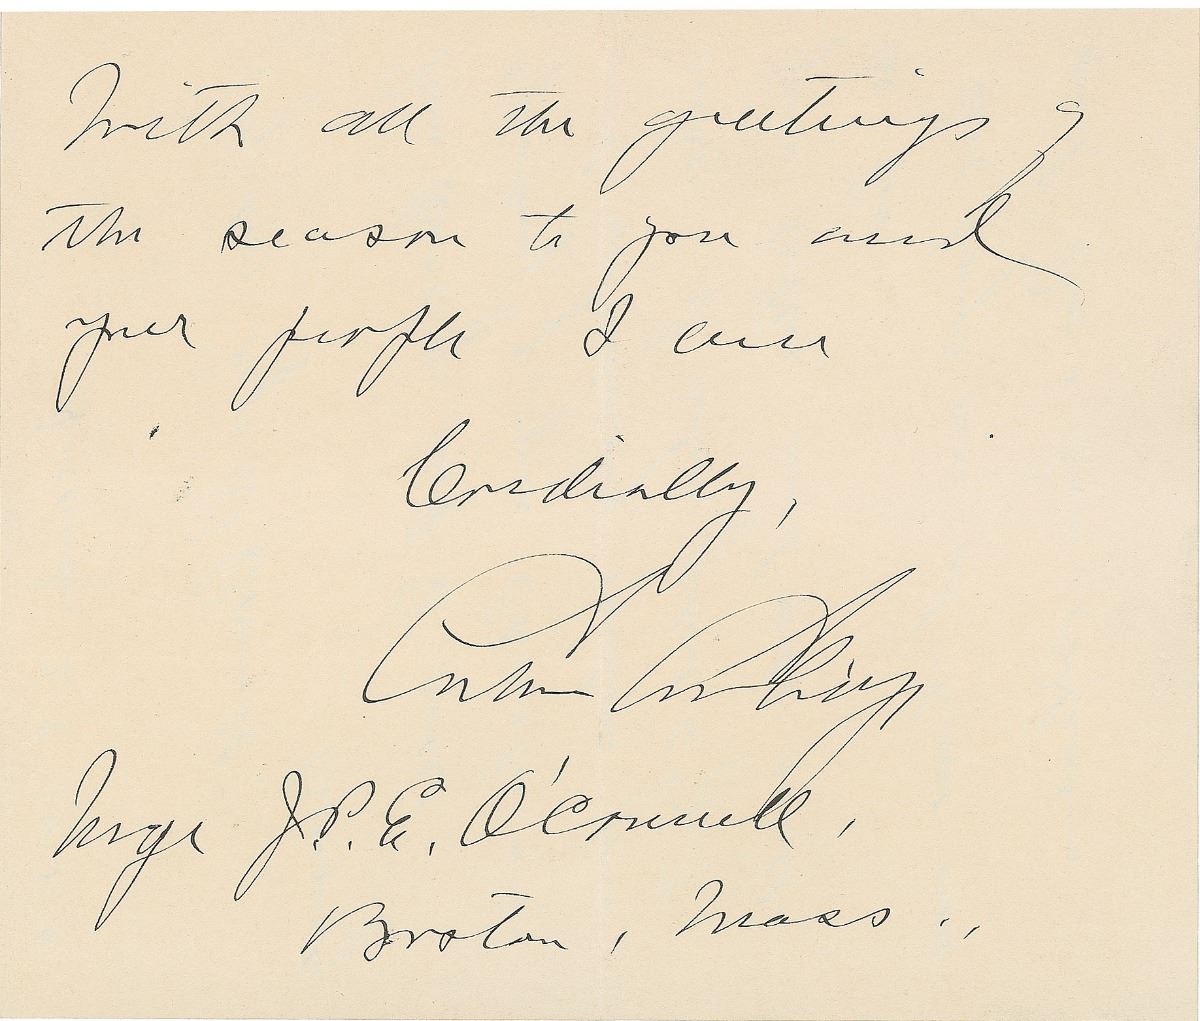 With all the greetings of
the season to you and
your people I am
Cordially,
Msgr J.P.E. O'Connell,
Boston, Mass.,